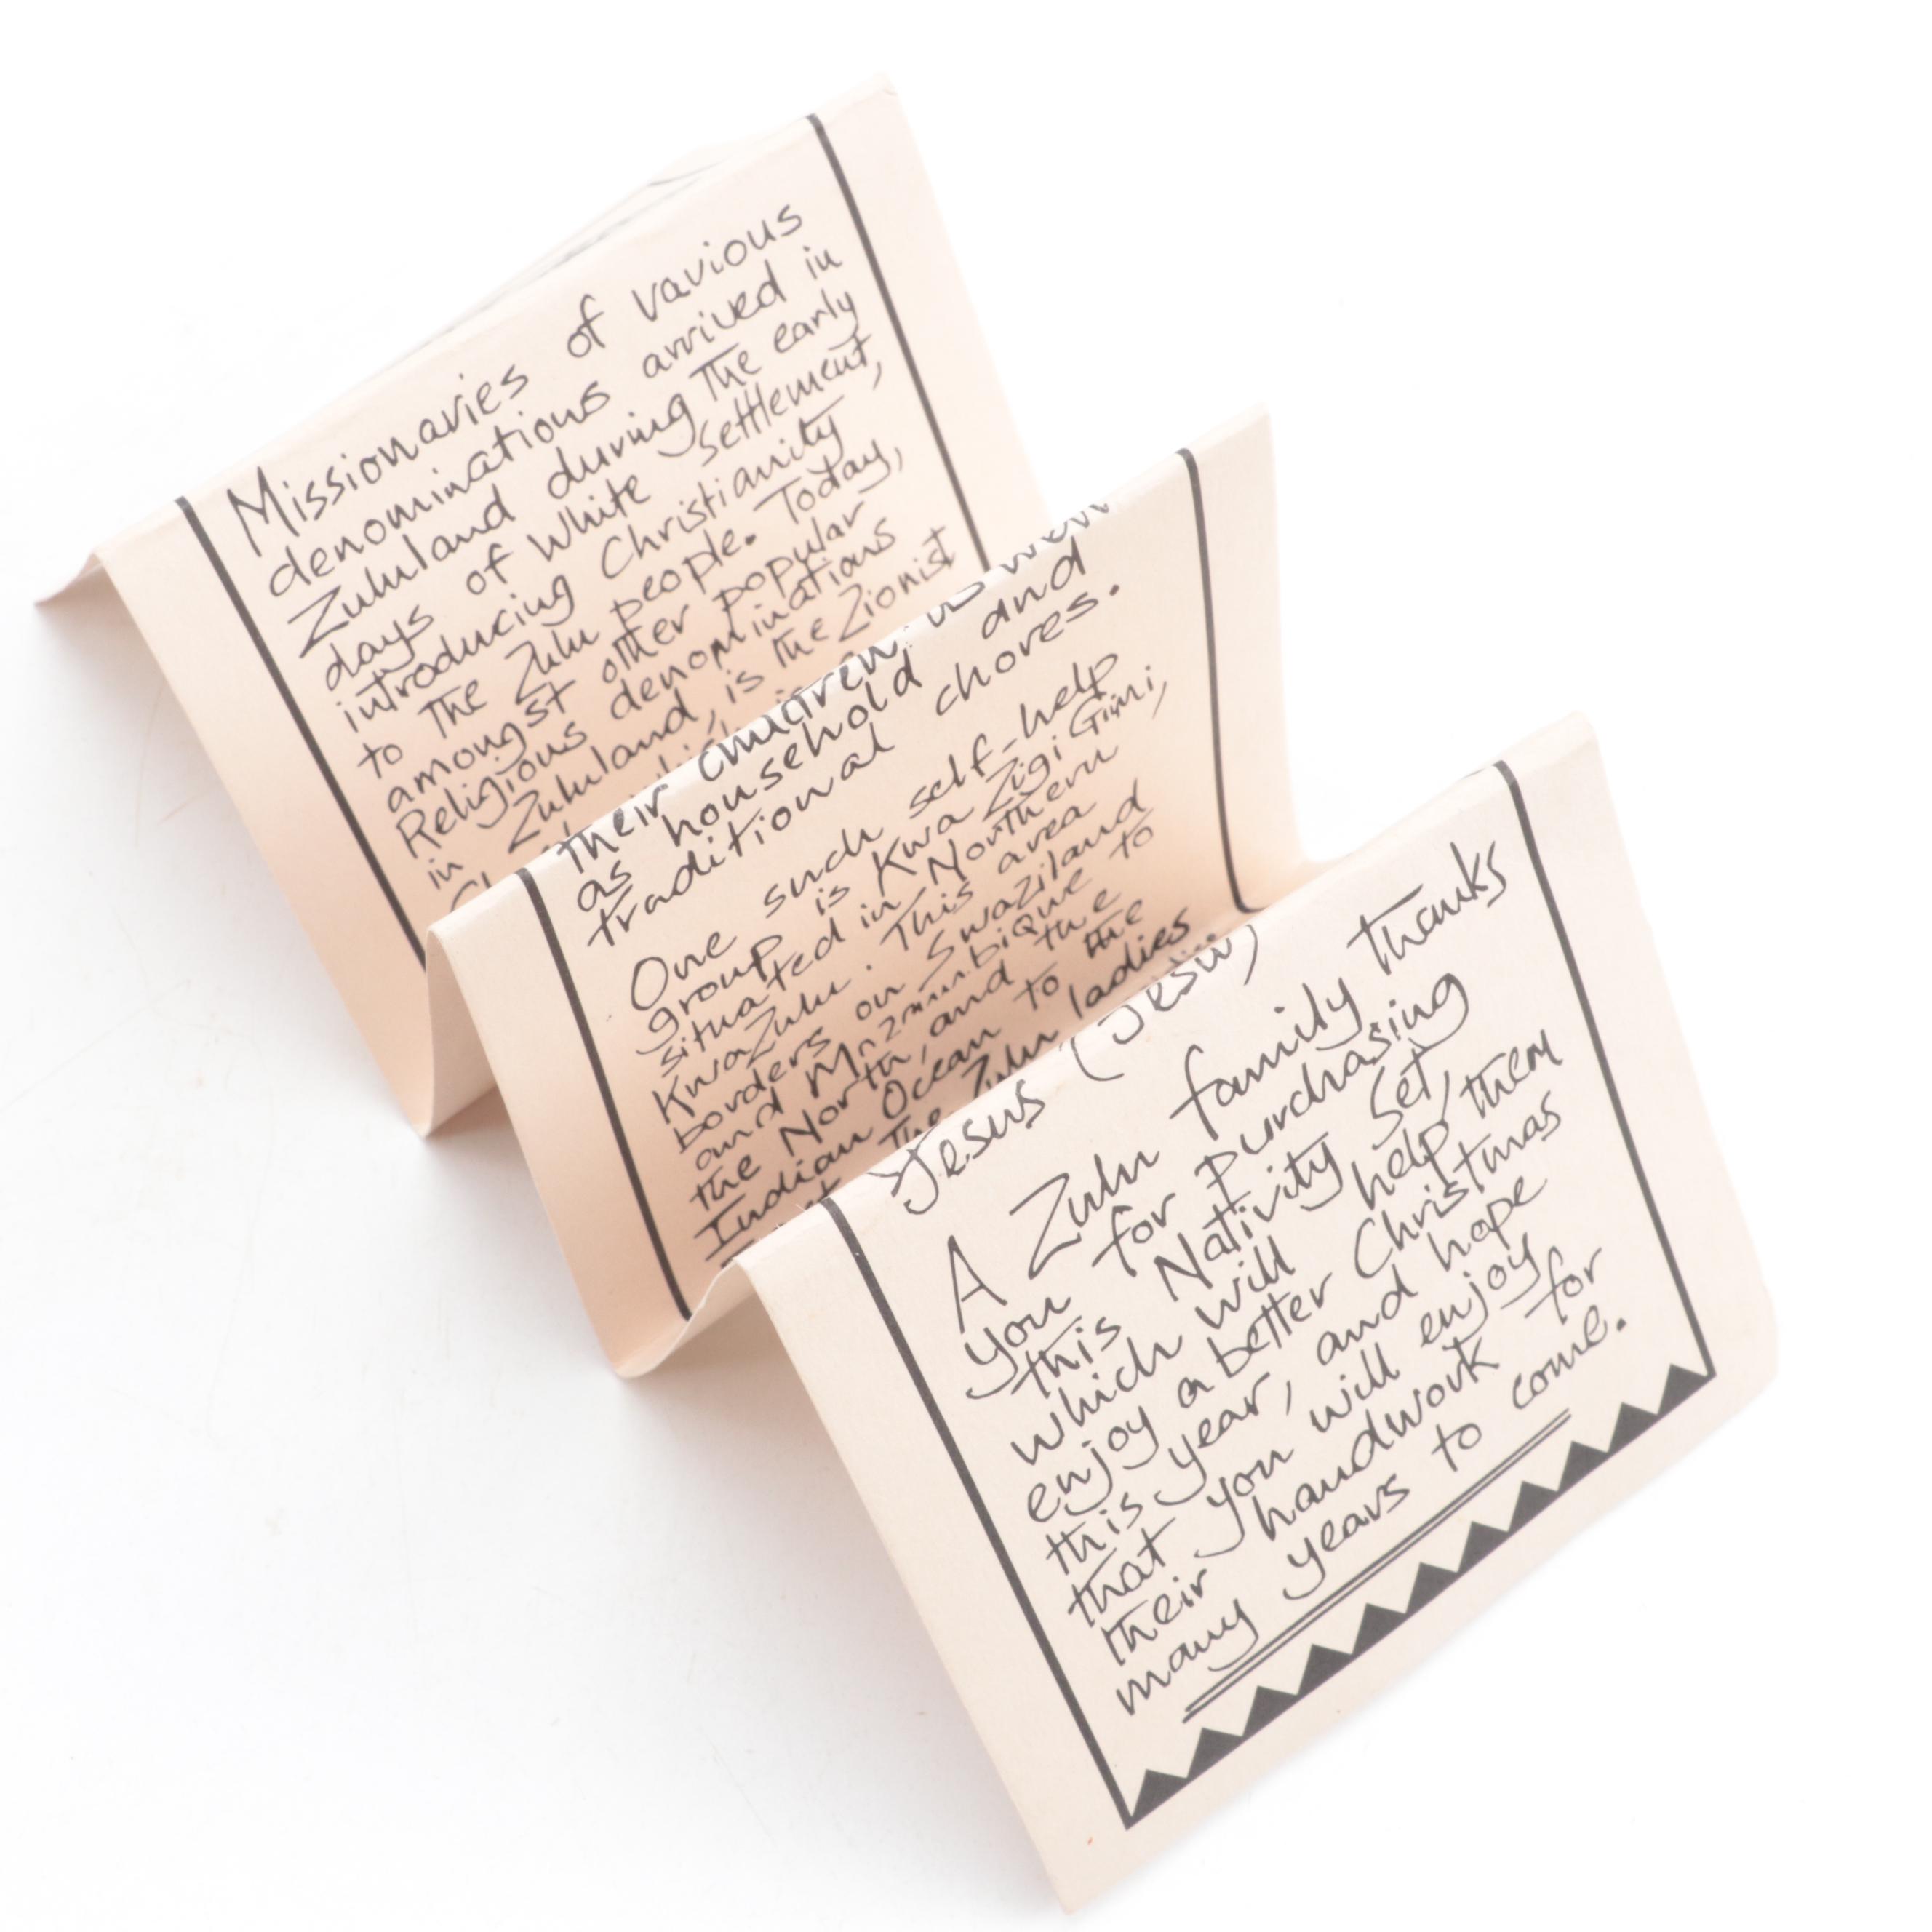 Missionaries of various
denominations arrived in
Zululand during the early
days of White settlement,
introducing Christianity
to the Zulu people. Today,
amongst other popular
Religious denominations
in Zululand, is the Zionist
their children as well
as household and
traditional chores.
One such self-help
group is Kwa Zigi Gini,
situated in Northern
KwaZulu. This area
borders on Swaziland
and Mozambique to
the North, and the
Indian Ocean to the
The Zulu ladies
Jesus (Jesu)
A Zulu family thanks
you for purchasing
this Nativity Set,
which will help them
enjoy a better Christmas
this year, and hope
that you will enjoy
their handwork for
many years to come.